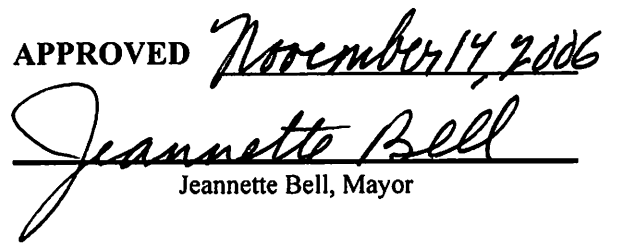 APPROVED November 14, 2006
Jeannette Bell
Jeannette Bell, Mayor